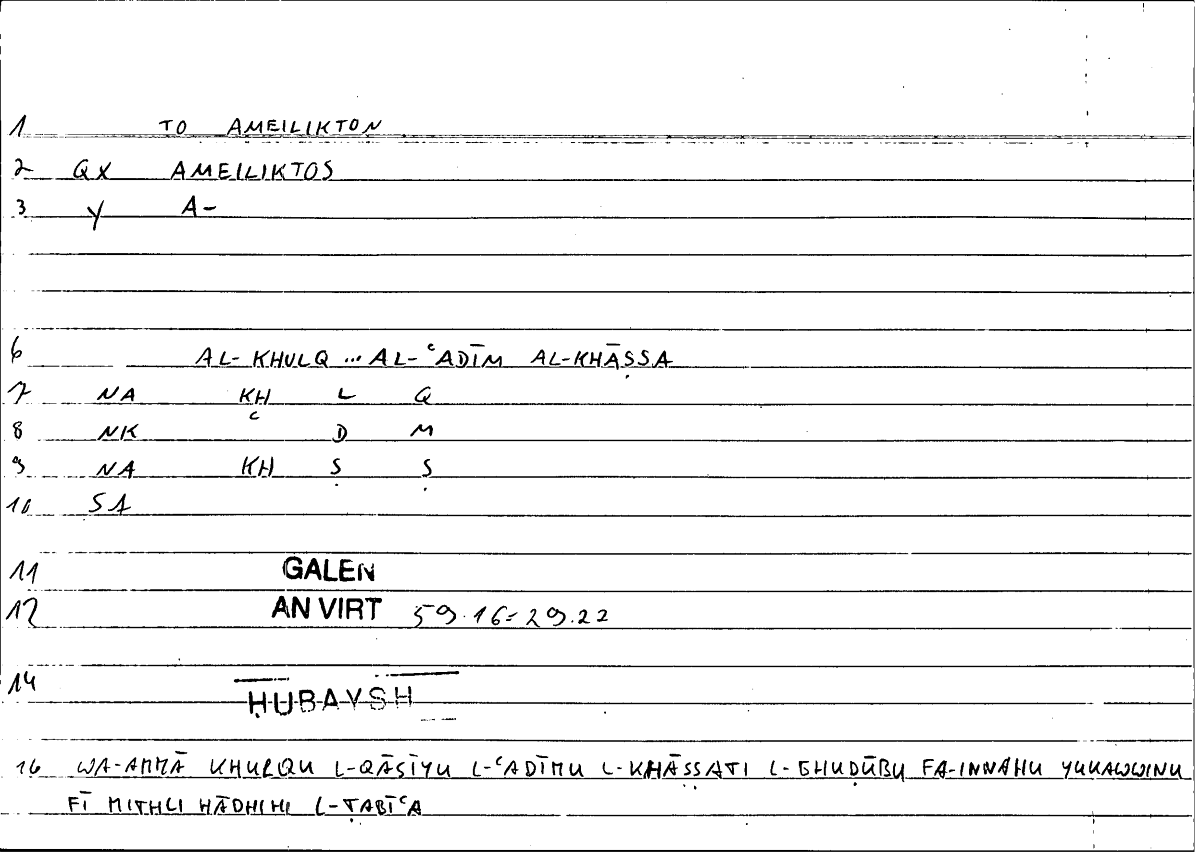 1 TO AMEILIKTON
2 QX AMEILIKTOS
3 Y A-
6 AL-KHULQ ... AL-ʿADĪM AL-KHĀṢṢA
7 NA KH L Q
8 NK ʿ D M
9 NA KH Ṣ Ṣ
10 SA
11 GALEN
12 AN VIRT 59.16=29.22
14 ḤUBAYSH
16 WA-AMMĀ KHULQU L-QĀSĪYU L-ʿADĪMU L-KHĀṢṢATI L-GHUḌŪBU FA-INNAHU YUKAWWINU
FĪ MITHLI HĀDHIHI L-ṬABĪʿA